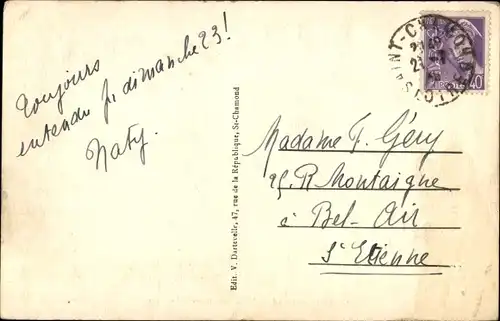 Toujours
entendu pr dimanche 23!
Naty.
Edit. V. Dartevelle, 47, rue de la République, St-Chamond
SAINT-CHAMOND
40
Madame F. Géry
R. Montaigne
à Bel-Air
St Etienne